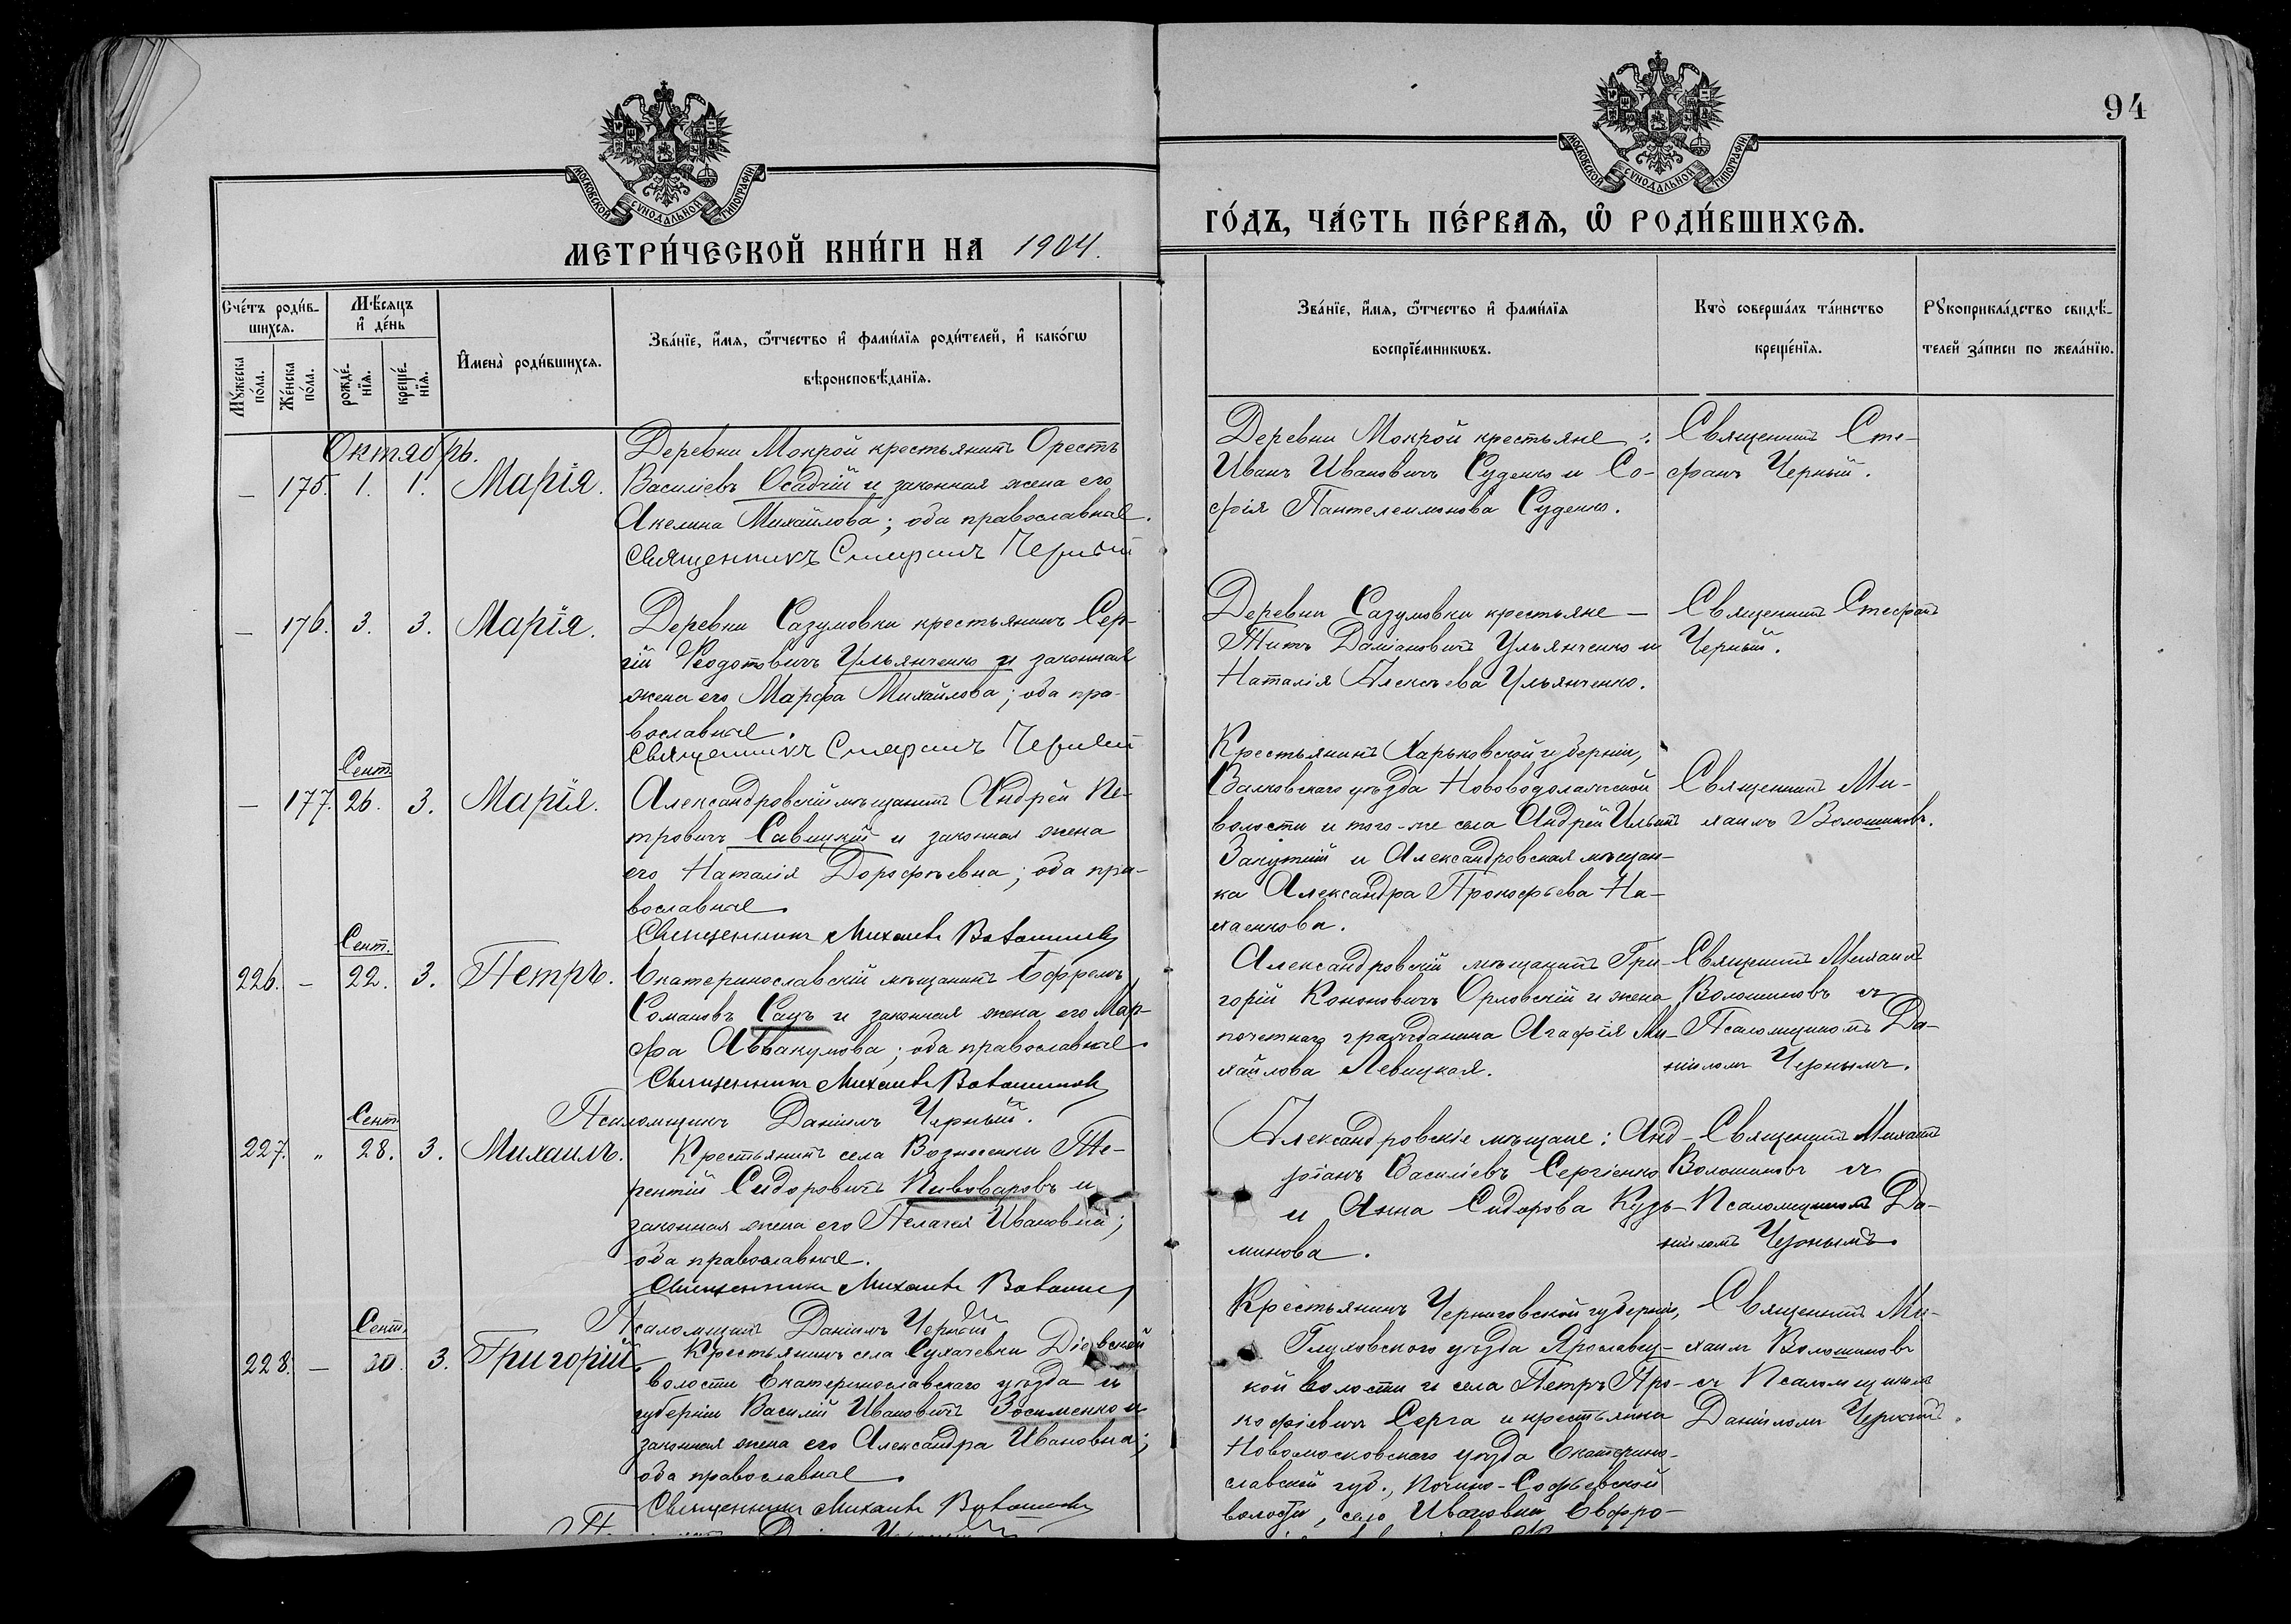 94
МОСКОВСКОЙ СѴНОДАЛЬНОЙ ТИПОГРАФІИ
МОСКОВСКОЙ СѴНОДАЛЬНОЙ ТИПОГРАФІИ
МЕТРИ́ЧЕСКОЙ КНИ́ГИ НА 1904.
ГО́ДЪ, ЧА́СТЬ ПЕ́РВАѦ, Ѿ РОДИ́ВШИХСѦ.
Сче́тъ роди́в-
шихсѧ.
Мꙋ́жеска по́ла.
Же́нска по́ла.
Мѣ́сѧцъ
и҆ де́нь
рожде́нїѧ.
креще́нїѧ.
И҆мена̀ роди́вшихсѧ.
Зва́нїе, и҆́мѧ, ѻ҆́тчество и҆ фами́лїѧ роди́телей, и҆ како́гѡ
вѣроисповѣ́данїѧ.
Зва́нїе, и҆́мѧ, ѻ҆́тчество и҆ фами́лїѧ
воспрїе́мникѡвъ.
Кто̀ соверша́лъ та́инство
креще́нїѧ.
Рꙋкоприкла́дство свидѣ́-
телей за́писи по жела́нїю.
Октябрь.
– 175. 1. 1. Марія.
Деревни Мокрой крестьянинъ Орестъ
Василіевъ Осадчій и законная жена его
Акелина Михайлова; оба православные.
Священникъ Стефанъ Черный
Деревни Мокрой крестьяне:
Иванъ Ивановичъ Суденко и Со-
фія Пантелеимонова Суденко.
Священникъ Сте-
фанъ Черный.
– 176. 3. 3. Марія.
Деревни Сазумовки крестьянинъ Сер-
гій Ѳеодотовичъ Ульянченко и законная
жена его Марфа Михайлова; оба пра-
вославные.
Священникъ Стефанъ Черный
Деревни Сазумовки крестьяне –
Титъ Даміановичъ Ульянченко и
Наталія Алексѣева Ульянченко.
Священникъ Стефанъ
Черный.
Сент.
– 177. 26. 3. Марія.
Александровскій мѣщанинъ Андрей Пе-
тровичъ Савицкій и законная жена
его Наталія Дорофѣевна; оба пра-
вославные.
Священникъ Михаилъ Волошиновъ
Крестьянинъ Харьковской губерніи,
Валковскаго уѣзда Нововодолажской
волости и того-же села Андрей Ильинъ
Закутній и Александровская мѣщан-
ка Александра Прокофьева На-
хаенкова.
Священникъ Ми-
хаилъ Волошиновъ.
Сент.
226. – 22. 3. Петръ.
Екатеринославскій мѣщанинъ Ефремъ
Романовъ Сацъ и законная жена его Мар-
фа Аввакумова; оба православные.
Священникъ Михаилъ Волошиновъ
Псаломщикъ Даніилъ Черный.
Александровскій мѣщанинъ Гри-
горій Кононовичъ Орловскій и жена
почетнаго гражданина Агафія Ми-
хайлова Левицкая.
Священникъ Михаилъ
Волошиновъ съ
Псаломщикомъ Да-
ніиломъ Чернымъ.
Сент.
227. „ 28. 3. Михаилъ.
Крестьянинъ села Вознесенки Те-
рентій Сидоровичъ Пивоваровъ и
законная жена его Пелагея Ивановна;
оба православные.
Священникъ Михаилъ Волошиновъ
Псаломщикъ Даніилъ Черный
Александровскіе мѣщане: Анд-
ріанъ Василіевъ Сергіенко
и Анна Сидорова Кузь-
минова.
Священникъ Михаилъ
Волошиновъ съ
Псаломщикомъ Да-
ніиломъ Чернымъ
Сент.
228. – 30. 3. Григорій
Крестьянинъ села Сухачевки Діевской
волости Екатеринославскаго уѣзда и
губерніи Василій Ивановичъ Зосименко и
законная жена его Александра Ивановна;
оба православные.
Священникъ Михаилъ Волошиновъ
Крестьянинъ Черниговской губерніи,
Глуховскаго уѣзда Ярославец-
кой волости и села Петръ Про-
кофіевичъ Серга и крестьянка
Новомосковскаго уѣзда Екатерино-
славской губ.,
волости, село Ивановки Евфро-
Священникъ Ми-
хаилъ Волошиновъ
съ Псаломщикомъ
Даніиломъ Чернымъ.